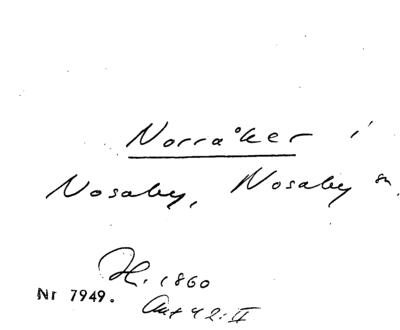 Norråker i
Nosaby, Nosaby sn.
H. 1860
Nr 7949.
Ant 42: II